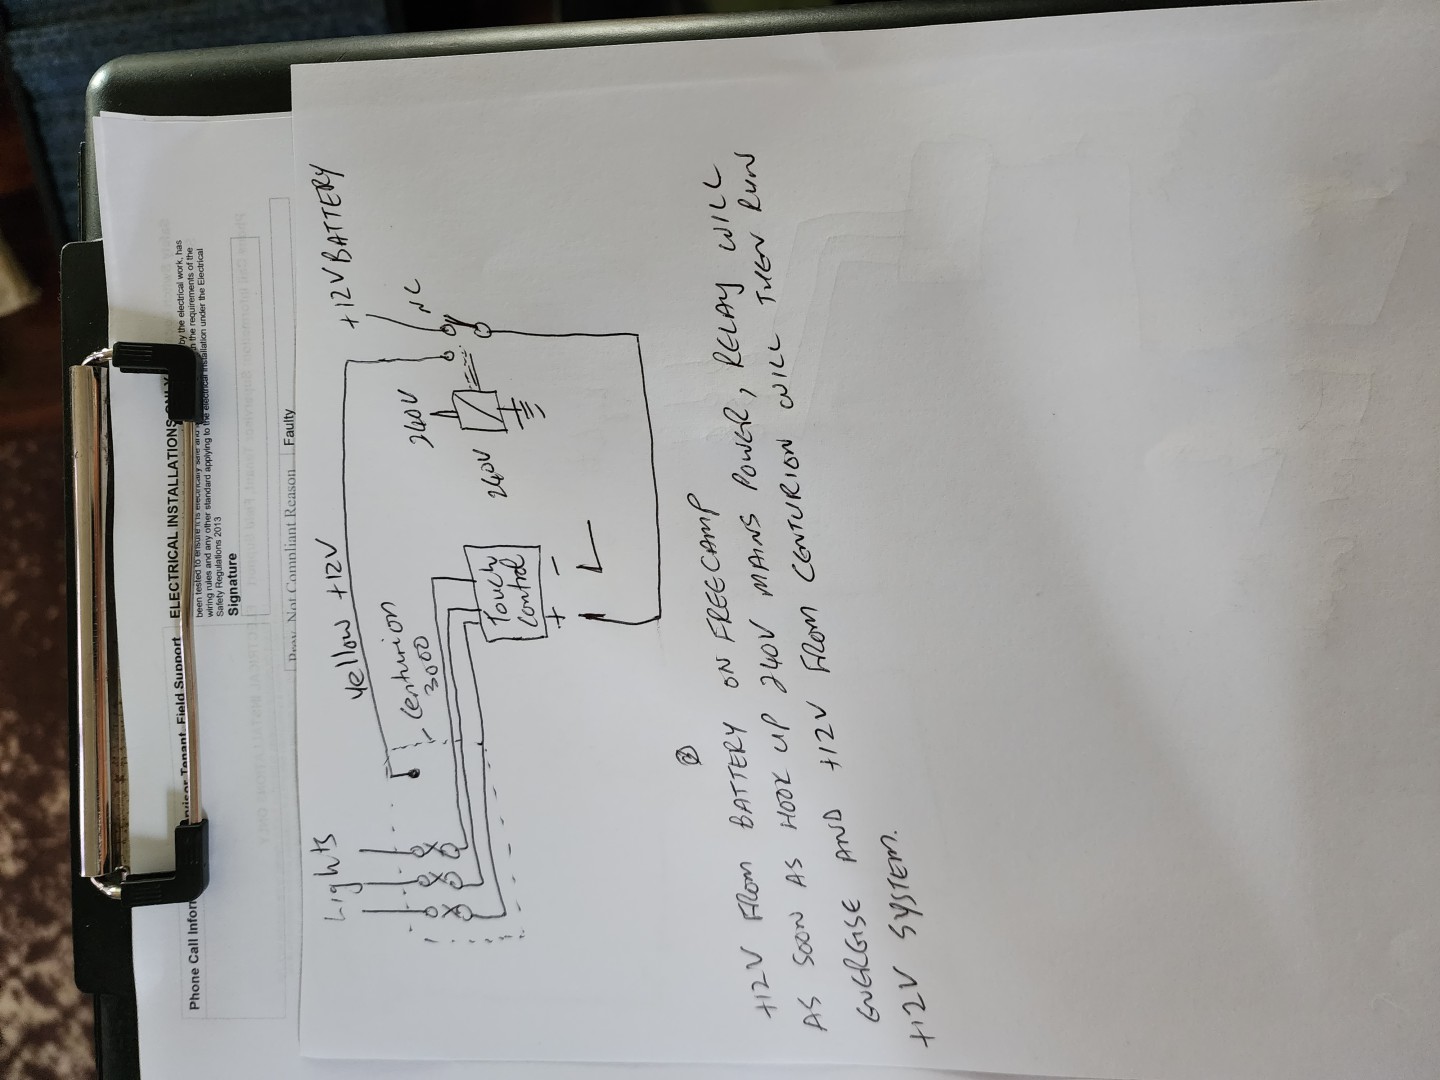 Phone Call Infor
visor Tenant Field Support
ELECTRICAL INSTALLATIONS ONLY
by the electrical work, has
been tested to ensure it is electrically safe and
the requirements of the
wiring rules and any other standard applying to the electrical installation under the Electrical
Safety Regulations 2013
Signature
Not Compliant Reason
Faulty
Lights
Yellow +12V
+12V BATTERY
Centurion
3000
240V
NC
240V
Touch
Control
+ -
+12V FROM BATTERY ON FREECAMP
AS SOON AS HOOK UP 240V MAINS POWER, RELAY WILL
ENERGISE AND +12V FROM CENTURION WILL THEN RUN
+12V SYSTEM.